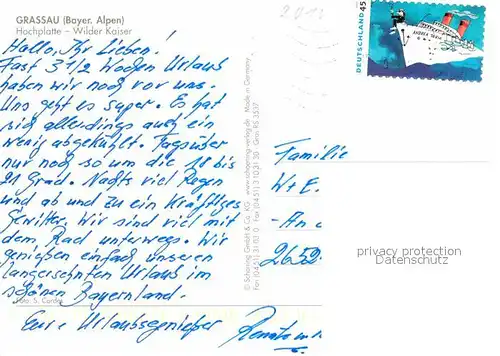 GRASSAU (Bayer. Alpen)
Hochplatte – Wilder Kaiser
Hallo, Ihr Lieben!
Fast 3 1/2 Wochen Urlaub
haben wir noch vor uns.
Uns geht es super. Es hat
sich allerdings auch ein
wenig abgekühlt. Tagsüber
nur noch so um die 18 bis
21 Grad. Nachts viel Regen
und ab und zu ein kräftiges
Gewitter. Wir sind viel mit
dem Rad unterwegs. Wir
genießen einfach unseren
langersehnten Urlaub im
schönen Bayernland.
Foto: S. Cordes
Eure Urlaubsgenießer
Renate
© Schöning GmbH & Co. KG · www.schoening-verlag.de · Made in Germany
Fax (0451) 310 31 30 · Grsn RS 3517
2013
DEUTSCHLAND 45
ANDREA DORIA
Familie
W + E.
- An
2652
privacy protection
Datenschutz